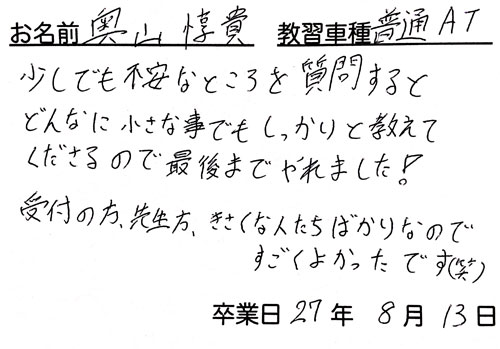 お名前 奥山 惇貴 教習車種 普通AT
少しでも不安なところを質問すると
どんなに小さな事でもしっかりと教えて
くださるので最後までやれました!
受付の方、先生方、きさくな人たちばかりなので
すごくよかったです(笑)
卒業日 27年 8月 13日